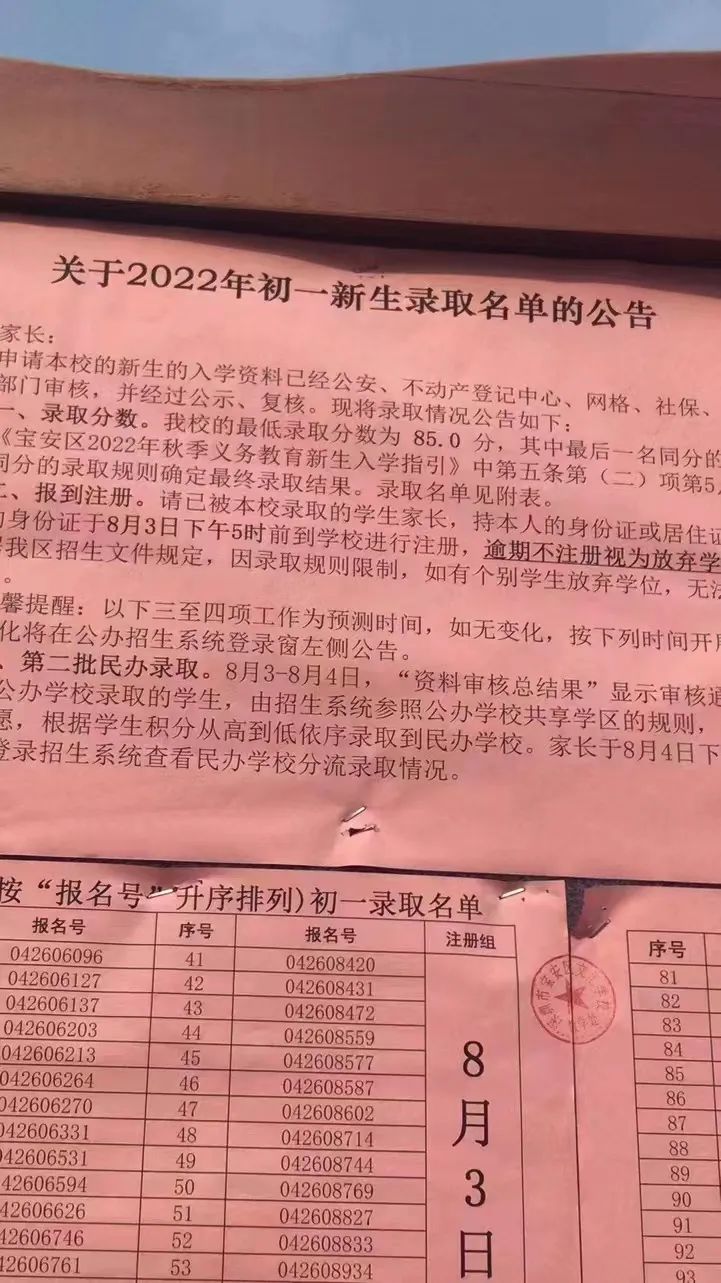 关于2022年初一新生录取名单的公告
家长：
申请本校的新生的入学资料已经公安、不动产登记中心、网格、社保、
部门审核，并经过公示、复核。现将录取情况公告如下：
一、录取分数。我校的最低录取分数为 85.0 分，其中最后一名同分的
《宝安区2022年秋季义务教育新生入学指引》中第五条第（二）项第5
同分的录取规则确定最终录取结果。录取名单见附表。
二、报到注册。请已被本校录取的学生家长，持本人的身份证或居住证
的身份证于8月3日下午5时前到学校进行注册，逾期不注册视为放弃学
我区招生文件规定，因录取规则限制，如有个别学生放弃学位，无法
。
馨提醒：以下三至四项工作为预测时间，如无变化，按下列时间开展
化将在公办招生系统登录窗左侧公告。
、第二批民办录取。8月3-8月4日，“资料审核总结果”显示审核通
公办学校录取的学生，由招生系统参照公办学校共享学区的规则，
愿，根据学生积分从高到低依序录取到民办学校。家长于8月4日下
登录招生系统查看民办学校分流录取情况。
按“报名号”升序排列)初一录取名单
报名号 序号 报名号 注册组 序号
042606096 41 042608420 81
042606127 42 042608431 82
042606137 43 042608472 83
042606203 44 042608559 84
042606213 45 042608577 85
042606264 46 042608587 86
042606270 47 042608602 87
042606331 48 042608714 88
042606531 49 042608744 89
042606594 50 042608769 90
042606626 51 042608827 91
042606746 52 042608833 92
042606761 53 042608934 93
8月3日